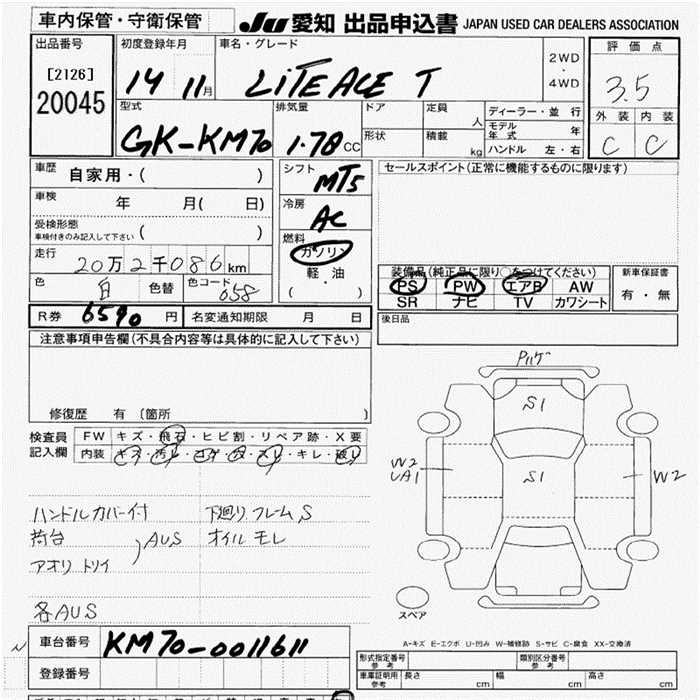 車内保管・守衛保管
JU 愛知 出品申込書 JAPAN USED CAR DEALERS ASSOCIATION
出品番号
[2126]
20045
初度登録年月
14 11月
車名・グレード
LiTE ACE T
2WD
・
4WD
評価点
3.5
外装 内装
C C
型式
GK-KM70
排気量
1.78 CC
ドア
形状
定員 人
積載 kg
ディーラー・並行
モデル年式 年
ハンドル 左・右
車歴 自家用・( )
車検 年 月( 日)
受検形態
車検付きのみ記入して下さい ( )
走行
20万2千086km
色 白 色替 色コード 058
シフト MT5
冷房 AC
燃料
ガソリン
軽・油
( ・ )
セールスポイント(正常に機能するものに限ります)
装備品(純正品に限り○をつけてください)
PS PW エアB AW
SR ナビ TV カワシート
新車保証書
有・無
R券 6590 円
名変通知期限 月 日
後日品
注意事項申告欄(不具合内容等は具体的に記入して下さい)
修復歴 有〔箇所 〕
検査員
記入欄
FW キズ・飛石・ヒビ割・リペア跡・X要
内装 キズ・汚レ・コゲ・穴・スレ・キレ・破レ
ハンドルカバー付
荷台
アオリ トリイ
AUS
各AUS
下廻りフレームS
オイルモレ
S1
S1
W2
UA1
W2
スペア
A-キズ E-エクボ U-凹み W-補修跡 S-サビ C-腐食 XX-交換済
車台番号 KM70-0011611
登録番号
形式指定番号
参考
類別区分番号
参考
車庫証明用
参考
長さ cm
幅 cm
高さ cm